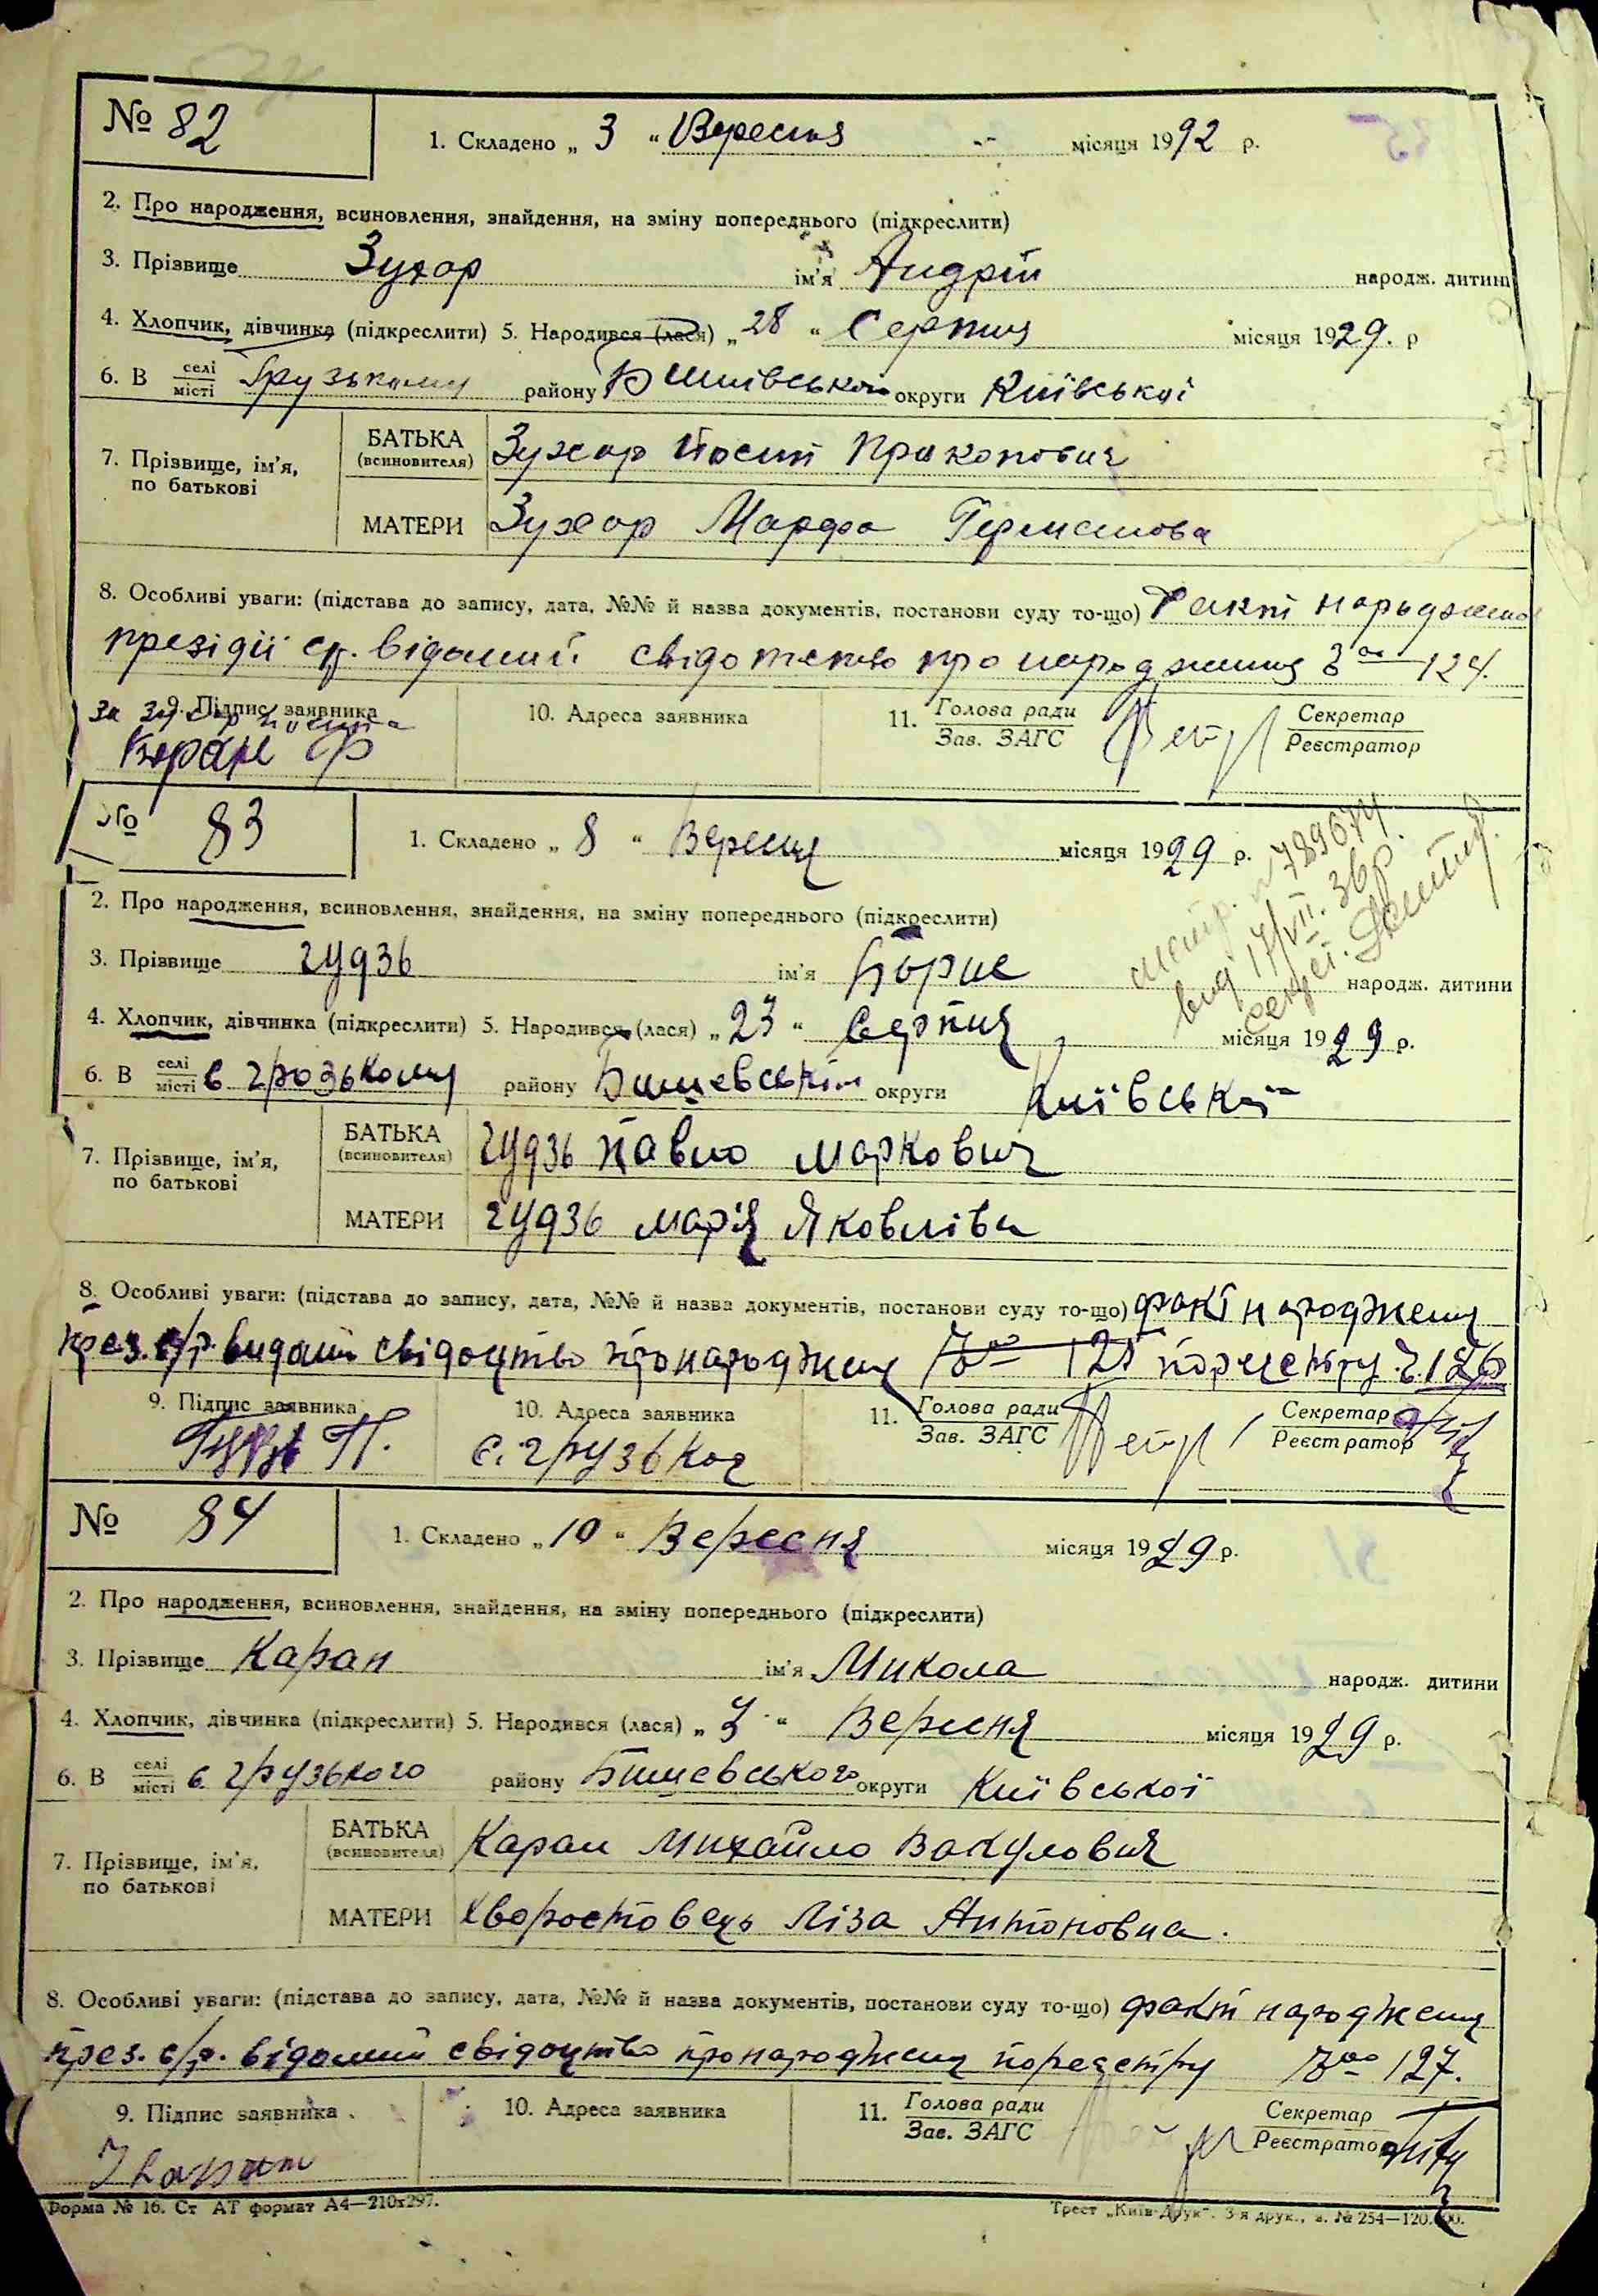 № 82
1. Складено „ 3 “ Вересня місяця 1992 р.
2. Про народження, всиновлення, знайдення, на зміну попереднього (підкреслити)
3. Прізвище Зухар ім'я Андрій народж. дитини
4. Хлопчик, дівчинка (підкреслити) 5. Народився (лася) „ 28 “ Серпня місяця 1929. р
6. В селі місті Грузькому району округи Київської
7. Прізвище, ім'я, по батькові
БАТЬКА (всиновителя) Зухар Йосип Прокопович
МАТЕРИ Зухар Марфа
8. Особливі уваги: (підстава до запису, дата, №№ й назва документів, постанови суду то-що) Факт
презідії с/р. відомий свідотство про народження 124.
9. Підпис заявника
За Зухар Йосипа
10. Адреса заявника
11. Голова ради Зав. ЗАГС
Секретар Реєстратор
№ 83
1. Складено „ 8 “ Вересня місяця 1929 р.
2. Про народження, всиновлення, знайдення, на зміну попереднього (підкреслити)
3. Прізвище гудзь ім'я Борис народж. дитини
4. Хлопчик, дівчинка (підкреслити) 5. Народився (лася) „ 23 “ Серпня місяця 1929 р.
6. В селі місті с грозькому району округи Київської
7. Прізвище, ім'я, по батькові
БАТЬКА (всиновителя) гудзь павло маркович
МАТЕРИ гудзь марія Яковлівна
8. Особливі уваги: (підстава до запису, дата, №№ й назва документів, постанови суду то-що) факт народження
през. с/р. свідоцтво про народження по реєстру 126
9. Підпис заявника
Гудзь П.
10. Адреса заявника
с. грузькое
11. Голова ради Зав. ЗАГС
Секретар Реєстратор
№ 84
1. Складено „ 10 “ Вересня місяця 1929 р.
2. Про народження, всиновлення, знайдення, на зміну попереднього (підкреслити)
3. Прізвище Каран ім'я Микола народж. дитини
4. Хлопчик, дівчинка (підкреслити) 5. Народився (лася) „ 3 “ Вересня місяця 1929 р.
6. В селі місті с. грузького району Бишевського округи Київської
7. Прізвище, ім'я, по батькові
БАТЬКА (всиновителя) Каран Михайло Вакулович
МАТЕРИ Хворостовець Ліза Антоновна.
8. Особливі уваги: (підстава до запису, дата, №№ й назва документів, постанови суду то-що) факт народження
през. с/р. відомий свідоцтво про народження по реєстру 127.
9. Підпис заявника
10. Адреса заявника
11. Голова ради Зав. ЗАГС
Секретар Реєстратор
Форма № 16. Ст АТ формат А4—210х297.
Трест „Київ-Друк“. 3-я друк., з. № 254—120.